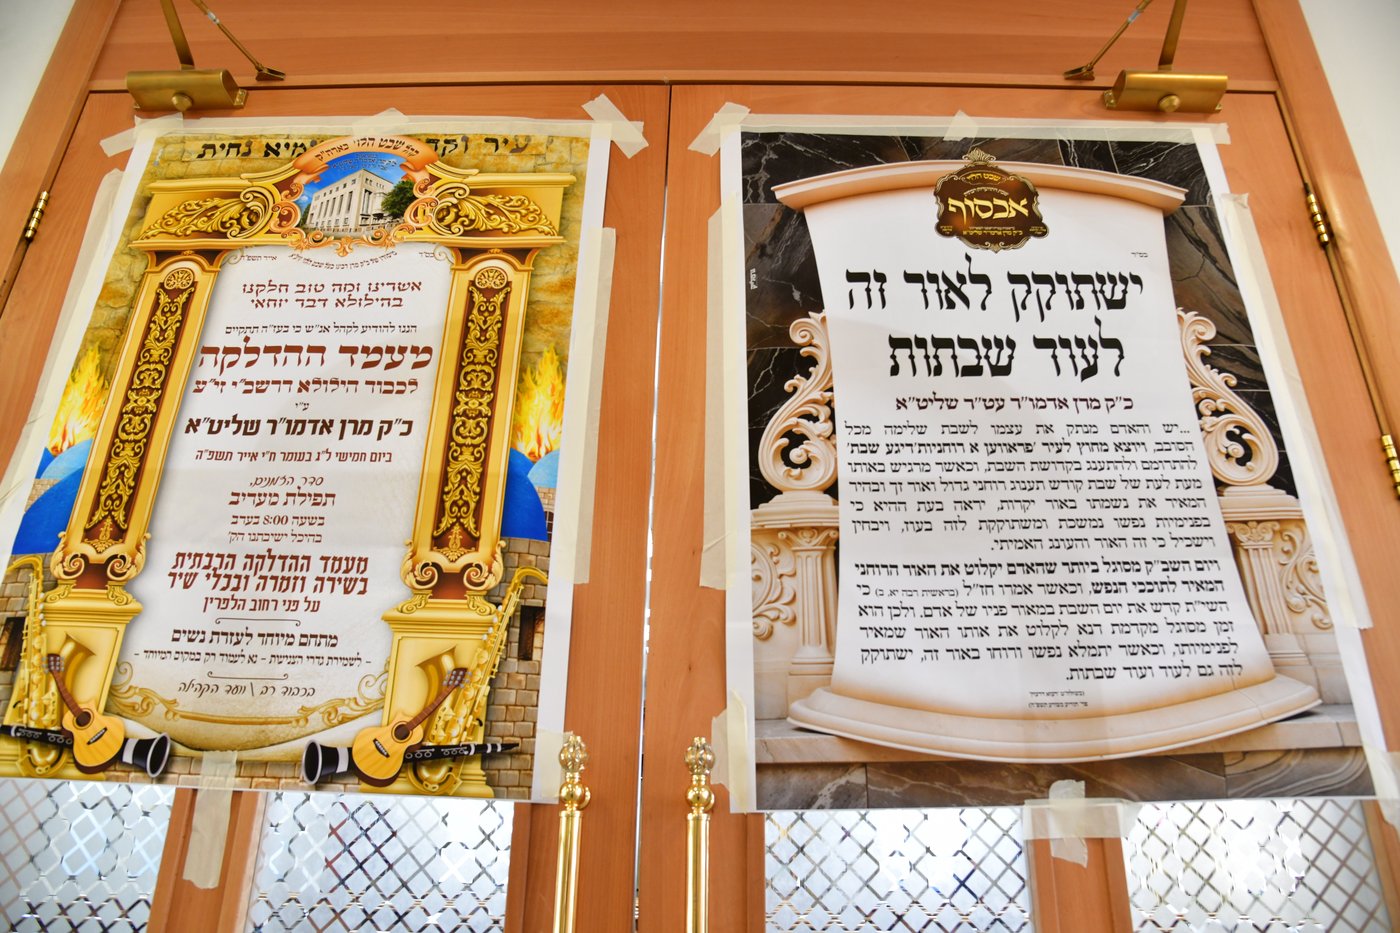 עיר וקד
מיא נחית
קהל שבט הלוי בארה"ק
בס"ד
אייר תשפ"ה
אשרינו ומה טוב חלקנו
בהילולא דבר יוחאי
הננו להודיע לקהל אנ"ש כי בעז"ה תתקיים
מעמד ההדלקה
לכבוד הילולא דרשב"י זי"ע
ע"י
כ"ק מרן אדמו"ר שליט"א
ביום חמישי ל"ג בעומר ח"י אייר תשפ"ה
סדר הזמנים:
תפילת מעריב
בשעה 8:00 בערב
בהיכל ישיבתנו הק'
מעמד ההדלקה הרבתית
בשירה וזמרה ובכלי שיר
על פני רחוב הלפרין
מתחם מיוחד לעזרת נשים
- לשמירת גדרי הצניעות - נא לעמוד רק במקום המיוחד -
בכבוד רב \ וועד הקהילה
שבט הלוי
אכסוף
בס"ד
ישתוקק לאור זה
לעוד שבתות
כ"ק מרן אדמו"ר עט"ר שליט"א
...יש והאדם מנתק את עצמו לשבת שלימה מכל
הסובב, ויוצא מחוץ לעיר 'פראווען א רוחניות'דיגע שבת'
להתרומם ולהתענג בקדושת השבת, וכאשר מרגיש באותו
מעת לעת של שבת קודש תענוג רוחני גדול ואור זך ובהיר
המאיר את נשמתו באור יקרות, יראה בעת ההיא כי
בפנימיות נפשו נמשכת ומשתוקקת לזה בעוז, ויבחין
וישכיל כי זה האור והעונג האמיתי.
ויום השב"ק מסוגל ביותר שהאדם יקלוט את האור הרוחני
המאיר לתוככי הנפש, וכאשר אמרו חז"ל (בראשית רבה יא, ב) כי
השי"ת קדש את יום השבת במאור פניו של אדם. ולכן הוא
זמן מסוגל מקדמת דנא לקלוט את אותו האור שמאיר
לפנימיותו, וכאשר יתמלא נפשו ורוחו באור זה, ישתוקק
לזה גם לעוד ועוד שבתות.